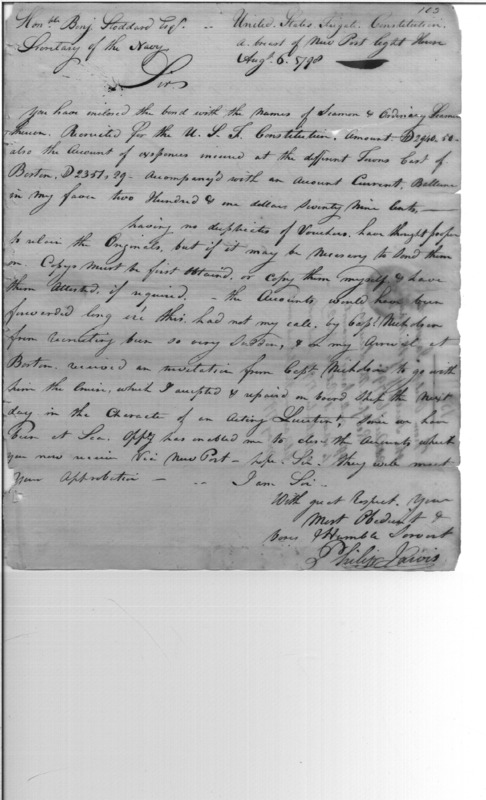 103
Hon.ble Benj. Stoddard Esq.r
United States Frigate Constitution
Secretary of the Navy
a breast of New Port Light House
Aug.t 6. 1798
Sir
You have inclosed the bond with the Names of Seamen & Ordinary Seamen
thereon. Recruited for the U. S. F. Constitution, Amount
also the Account of expenses incured at the different Towns East of
Boston, D2351,29 - Accompany'd with an Account Current. Ballance
in my favor two Hundred & one dollars Seventy Nine Cents, —
having no duplicates of Vouchers, have thought proper
to retain the Originals, but if it may be Necessary to Send them
on - Copys must be first Obtaind, or Copy them myself & have
them Attested, if required. - the Accounts, would have been
forwarded long e're this, had not my call, by Cap.t Nicholson
from recruiting been so very Sudden, & on my Arrival at
Boston, received an invitation from Cap.t Nicholson to go with
him the Cruise, which I accepted & repaird on board Ship the Next
day in the Character of an Acting Lieutenant, Since we have
been at Sea. Oppty has enabled me to close the Accounts which
you now receive Via New Port - hope Sir they will meet
Your Approbation - I am Sir -
With great Respect, Your
Most Obedient &
Very Humble Servant
Philip Jarvis